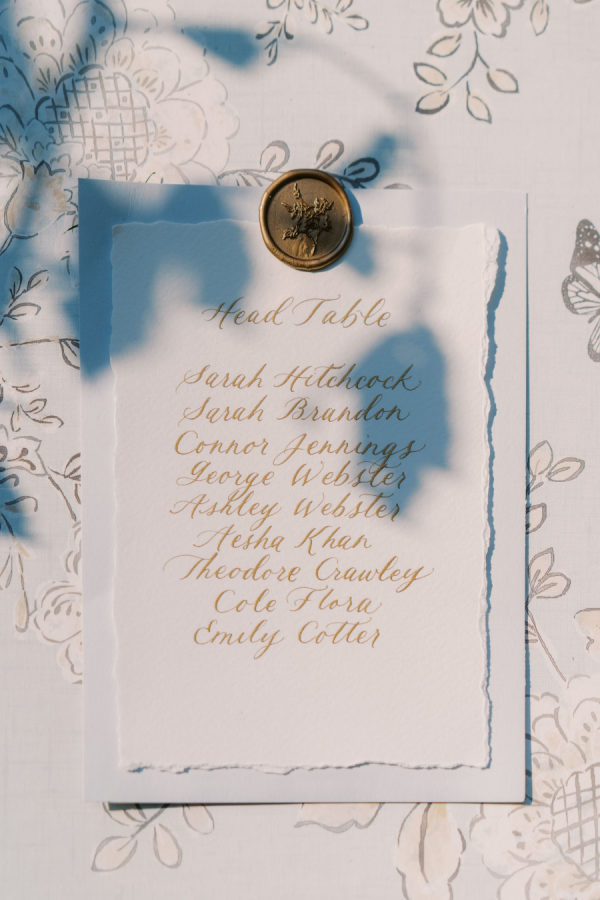 Head Table
Sarah Hitchcock
Sarah Brandon
Connor Jennings
George Webster
Ashley Webster
Aesha Khan
Theodore Crawley
Cole Flora
Emily Cotter